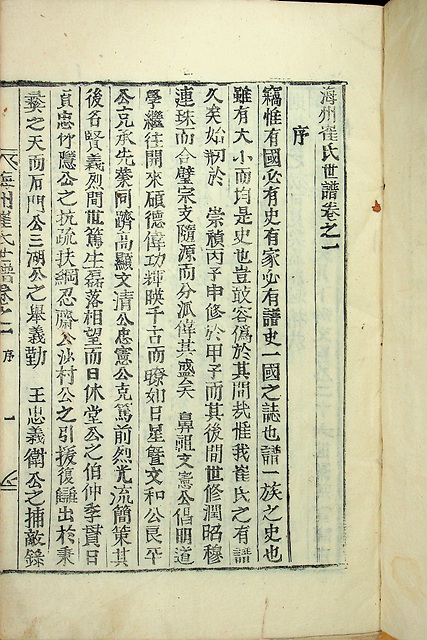 海州崔氏世譜卷之一
序
竊惟有國必有史有家必有譜史一國之誌也譜一族之史也
雖有大小而均是史也豈敢容僞於其間哉惟我崔氏之有譜
久矣始刱於 崇禎丙子申修於甲子而其後間世修潤昭穆
連珠而合璧宗支隨源而分派偉其盛矣 鼻祖文憲公倡明道
學繼往開來碩德偉功輝暎千古而暸如日星曁文和公良平
公克承先業同躋高顯文清公忠憲公克篤前烈光流簡策其
後名賢義烈間世篤生磊落相望而日休堂公之伯仲季貫日
貞忠竹隱公之抗疏扶綱忍齋公汕村公之引援復讎出於秉
彝之天而石門公三湖公之擧義勤 王忠義衛公之捕敵錄
海州崔氏譜卷之一 序 一